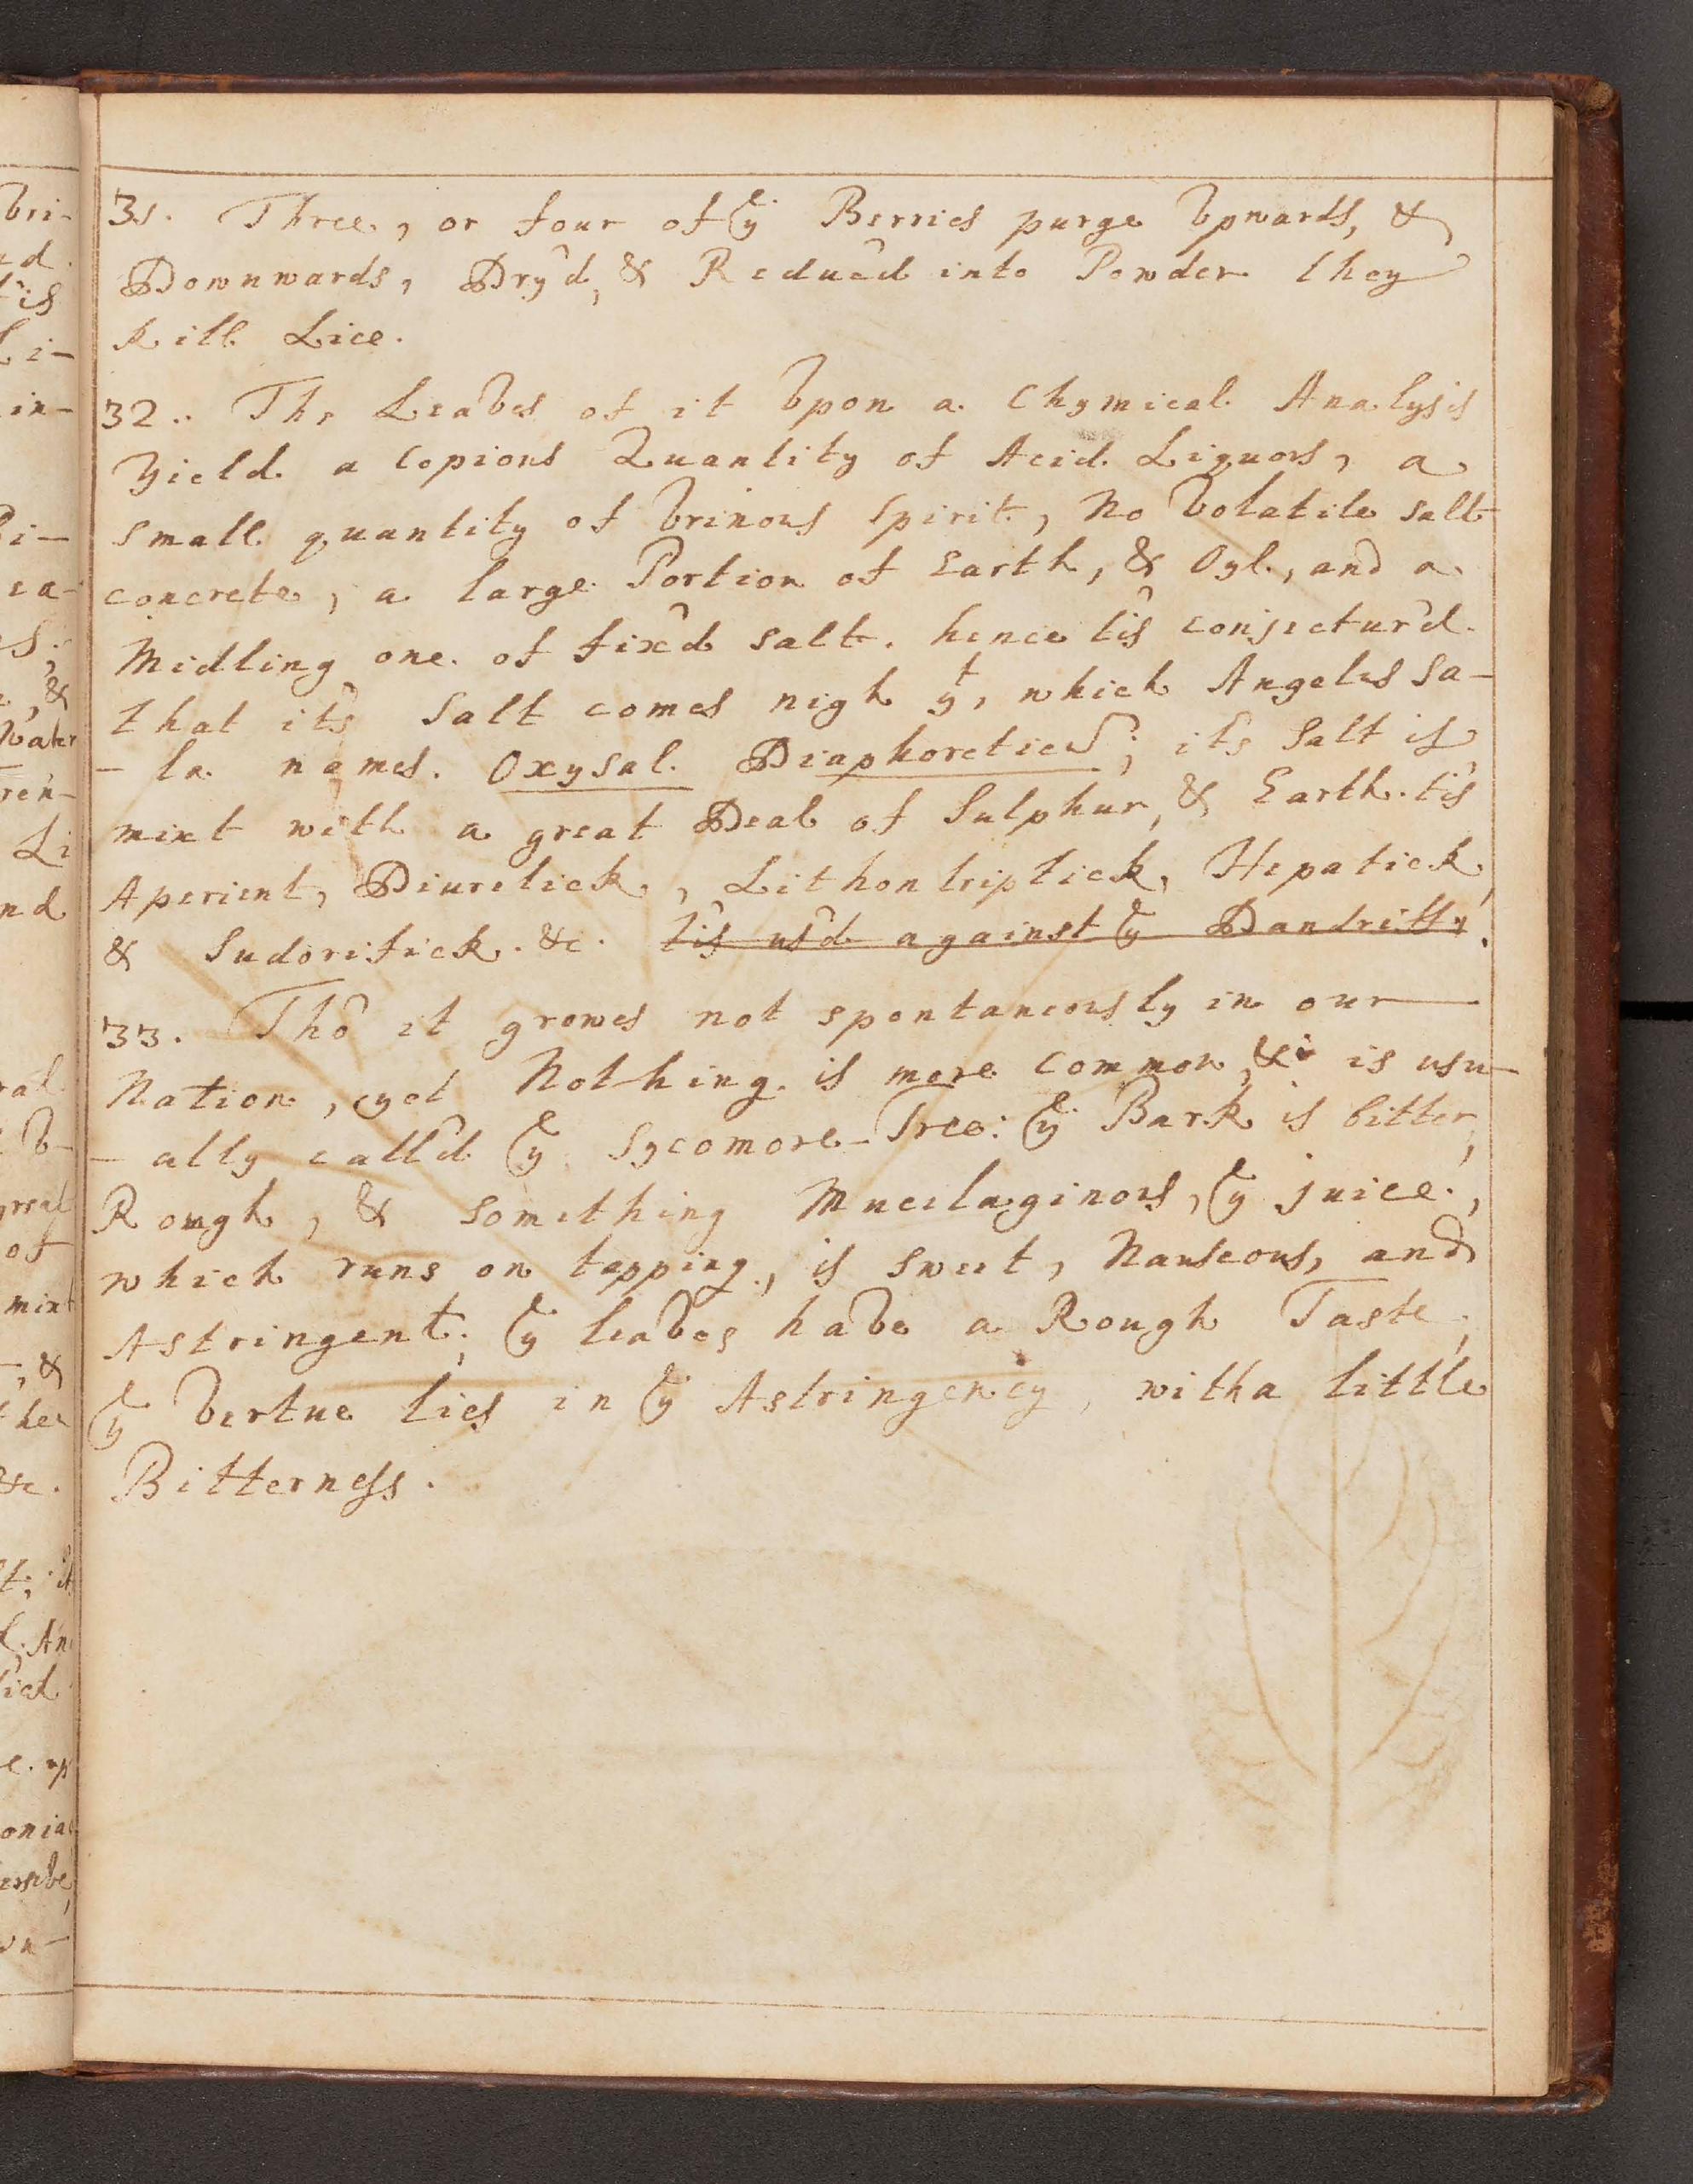 31. Three, or four of yͤ Berries purge Vpwards, &
Downwards, Dry'd, & Reduc'd into Powder they
kill Lice.
32.. The Leaves of it Vpon a Chymical Analysis
Yield a Copious Quantity of Acid Liquors, a
small quantity of Vrinous Spirit, No Volatile salt
concrete, a large Portion of Earth, & Oyl, and a
Midling one of fix'd salt. hence tis conjectur'd
that it's Salt comes nigh yͭ, which Angelus Sa-
-la names. Oxysal Diaphoreticu͂; it's Salt is
mixt with a great Deal of Sulphur, & Earth. tis
Aperient, Diuretick, Lithontriptick, Hepatick,
& Sudorifick. &c. tis us'd against yͤ Dandriff.
33. Tho' it growes not spontaneously in our
Nation, yet Nothing is more common, & is usu-
-ally call'd yͤ Sycomore-Tree: yͤ Bark is bitter,
Rough, & something Mucilaginous, yͤ juice,
which runs on tapping, is sweet, Nauseous, and
Astringent; yͤ leaves have a Rough Taste,
yͤ Vertue lies in yͤ Astringency, with a little
Bitterness.
bri-
Li-
in-
Pi-
ea-
, &
Water
ren-
Li
nd
great
of
mixt
, &
&c.